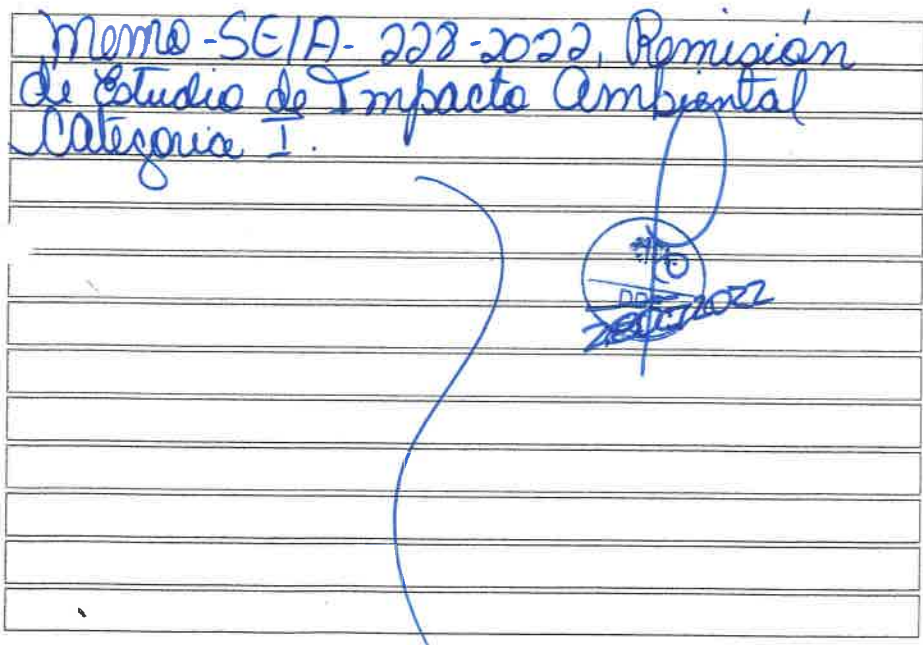 Memo-SEIA-228-2022, Remisión
de Estudio de Impacto Ambiental
Categoria I.